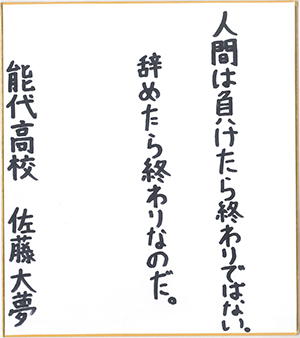 人間は負けたら終わりではない。
辞めたら終わりなのだ。
能代高校 佐藤大夢